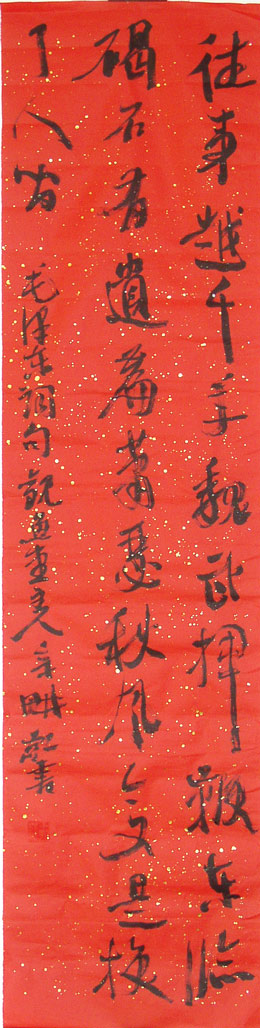 往事越千年魏武揮鞭东临
碣石有遺篇萧瑟秋风今又是换
了人间 毛泽东词句
书